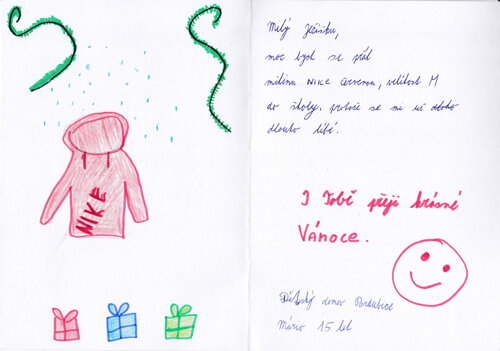 NIKE
Milý Ježíšku,
moc bych se přál
mikinu NIKE červenou, velikost M
do školy, protože se mi už dlouho
dlouho líbí.
I Tobě přeji krásné
VÁNOCE.
Dětský domov Pardubice
Mário 15 let